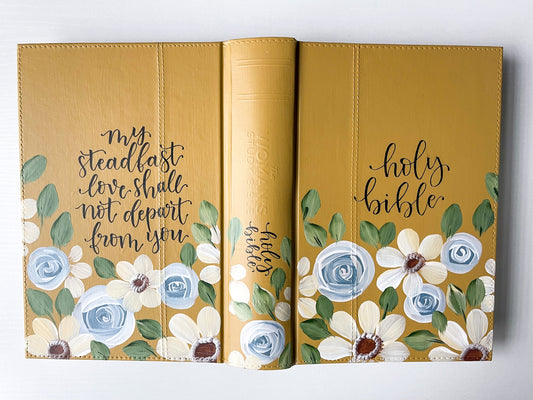 my
steadfast
love shall
not depart
from you
THE
WOMAN'S
STUDY BIBLE
holy
bible
holy
bible